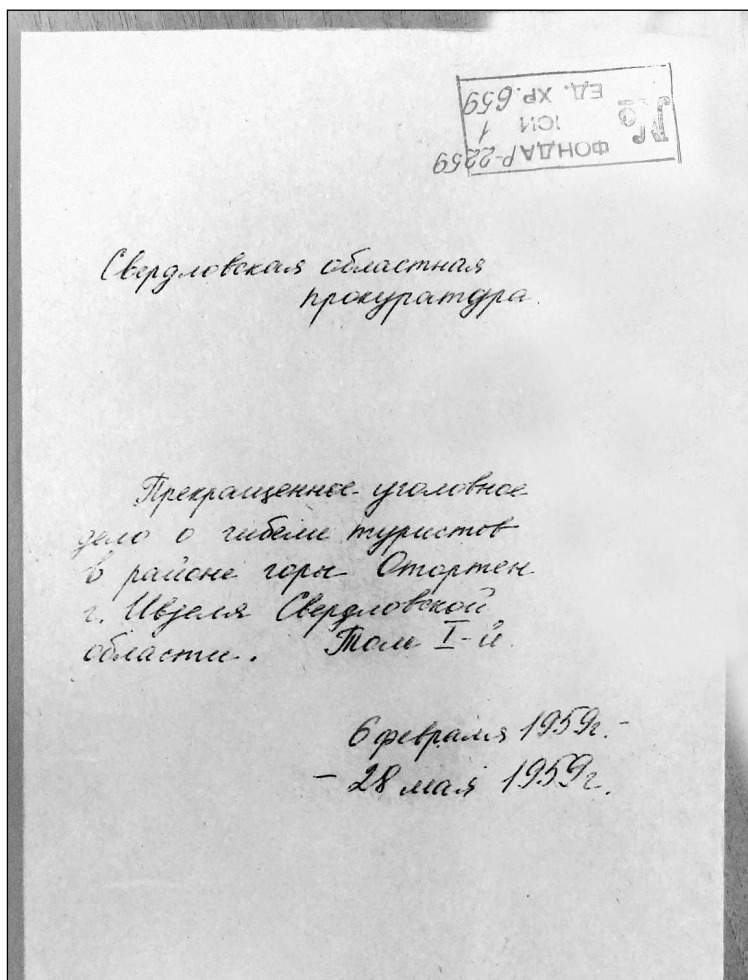 № ФОНДА Р-2259
ОПИ 1
ЕД. ХР. 659
Свердловская областная
прокуратура.
Прекращенное уголовное
дело о гибели туристов
в районе горы Отортен
г. Ивделя Свердловской
области. Том I-й.
6 февраля 1959г. -
- 28 мая 1959г.